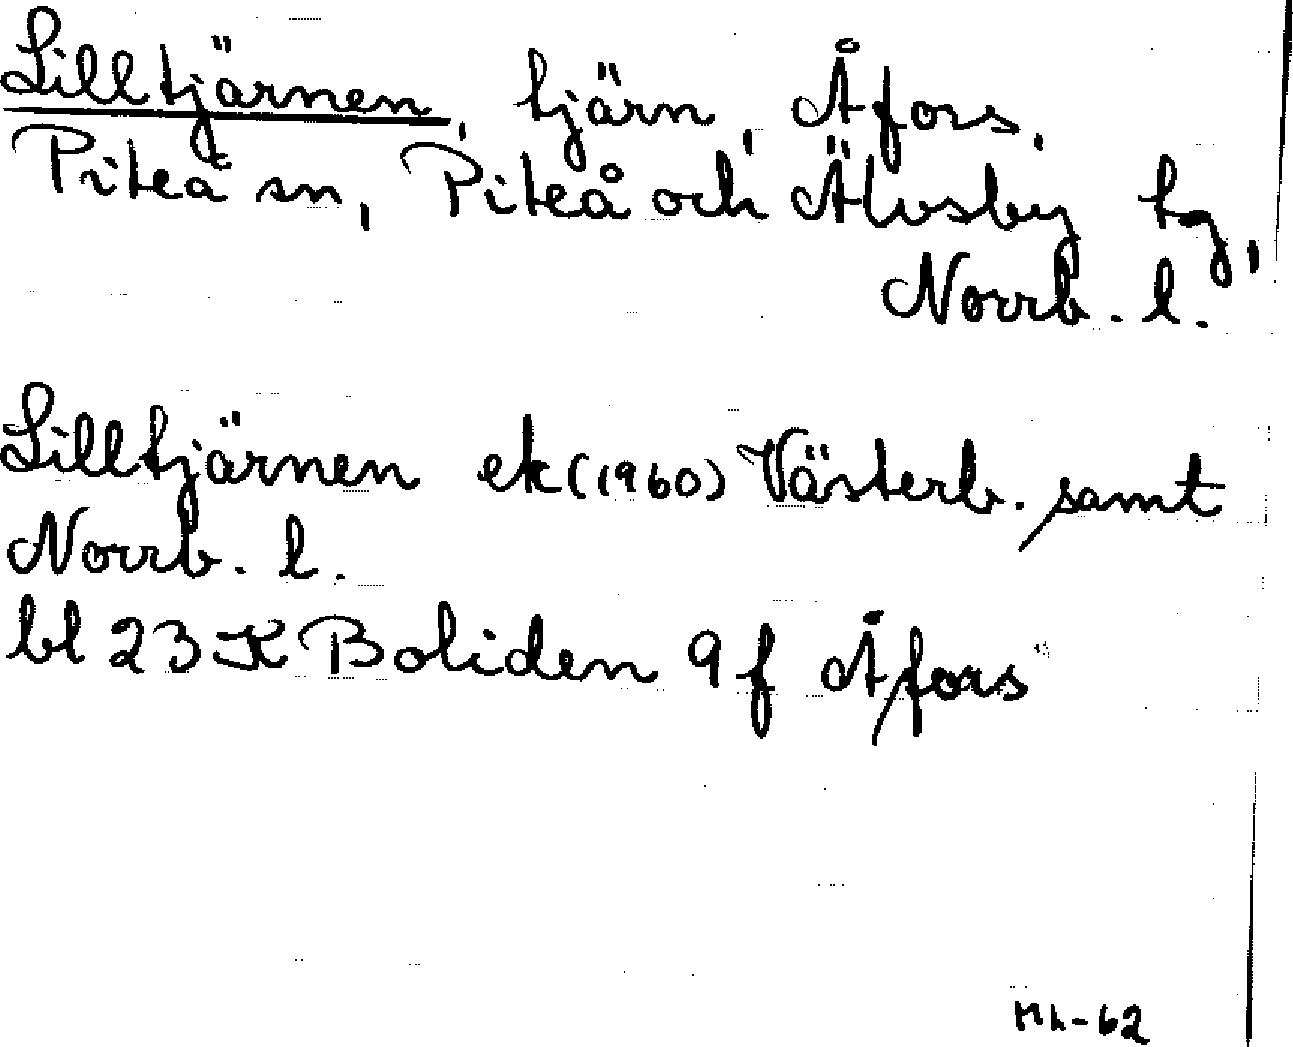 Lilltjärnen, tjärn, Åfors,
Piteå sn, Piteå och Älvsby tg,
Norrb. l.
Lilltjärnen ek (1960) Västerb. samt
Norrb. l.
bl 23 K Boliden 9 f Åfors
Mh-62